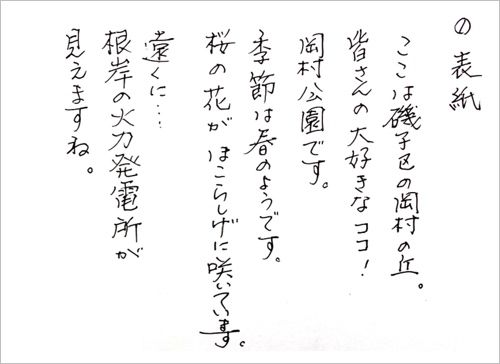 ① 表紙
ここは磯子区の岡村の丘。
皆さんの大好きなココ！
岡村公園です。
季節は春のようです。
桜の花がほこらしげに咲いています。
遠くに…
根岸の火力発電所が
見えますね。